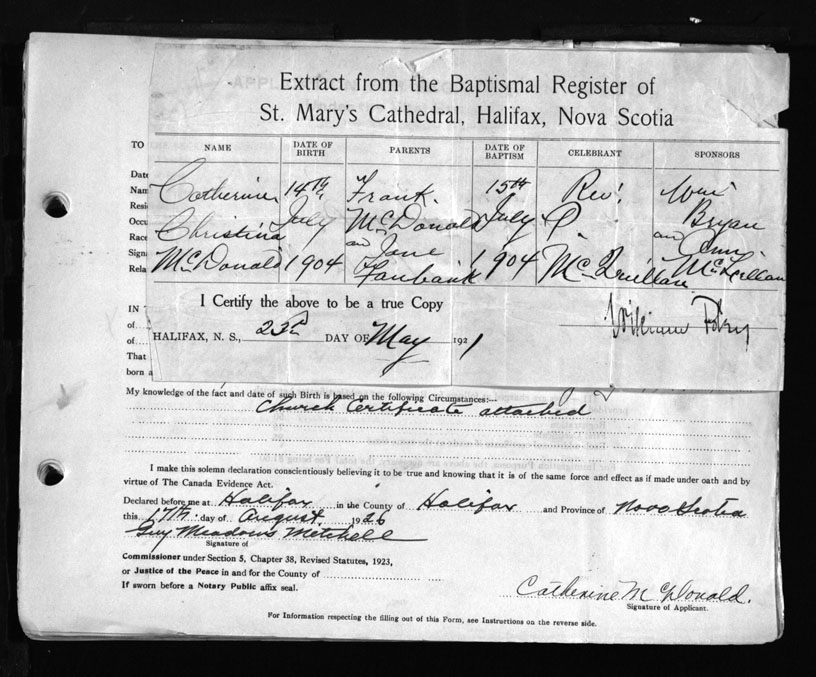 Extract from the Baptismal Register of
St. Mary's Cathedral, Halifax, Nova Scotia
TO
NAME DATE OF BIRTH PARENTS DATE OF BAPTISM CELEBRANT SPONSORS
Date
Nam
Resi
Occu
Race
Signa
Rela
Catherine 14th Frank 15th Rev. Wm
Christina July McDonald July P. Bryan
and Jane and Ann
McDonald 1904 Fanbank 1904 McQuillan McLellan
I Certify the above to be a true Copy
IN
of
of
That
born a
HALIFAX, N. S., 23rd DAY OF May 1921
William
My knowledge of the fact and date of such Birth is based on the following Circumstances:—
Church Certificate attached
I make this solemn declaration conscientiously believing it to be true and knowing that it is of the same force and effect as if made under oath and by
virtue of The Canada Evidence Act.
Declared before me at Halifax in the County of Halifax and Province of Nova Scotia
this 17th day of August 1926
Guy Meadows Mitchell
Signature of
Commissioner under Section 5, Chapter 38, Revised Statutes, 1923,
or Justice of the Peace in and for the County of
If sworn before a Notary Public affix seal.
Catherine McDonald.
Signature of Applicant.
For Information respecting the filling out of this Form, see Instructions on the reverse side.